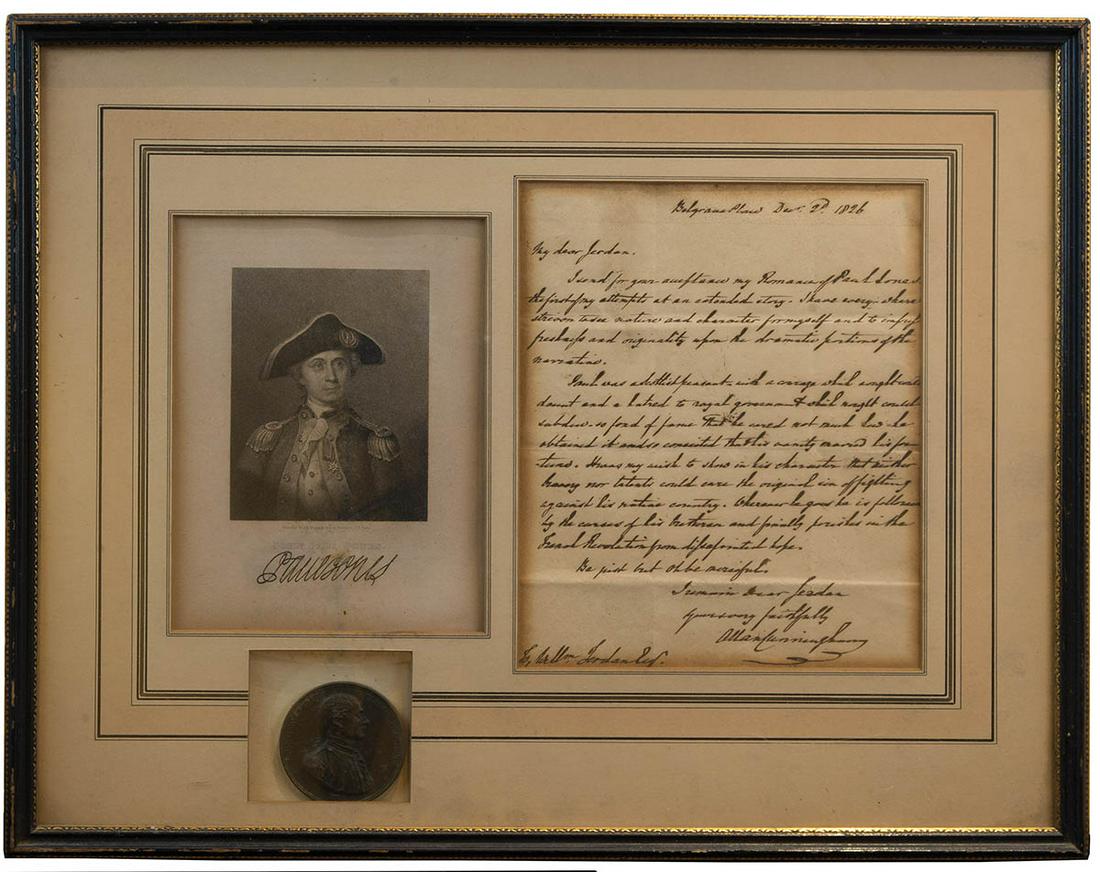 Paul Jones
Belgrave Place Decr. 2d. 1826
My dear Jerdan.
I send for your acceptance my Romance of Paul Jones
the first of my attempts at an extended story. I have every where
striven to see nature and character for myself and to impress
freshness and originality upon the dramatic portions of the
narrative.
Paul was a Scottish peasant with a courage which nought could
daunt and a hatred to royal government which nought could
subdue - so fond of fame that he cared not much how he
obtained it and so conceited that his vanity marred his for-
-tune. It was my wish to show in his character that neither
bravery nor talents could cure the original sin of fighting
against his native country. Wherever he goes he is followed
by the curses of his brethren and finally perishes in the
French Revolution from dissapointed hope.
Be just but oh be merciful.
I remain Dear Jerdan
Yours very faithfully
Allan Cunningham
To Wm. Jerdan Esqr.